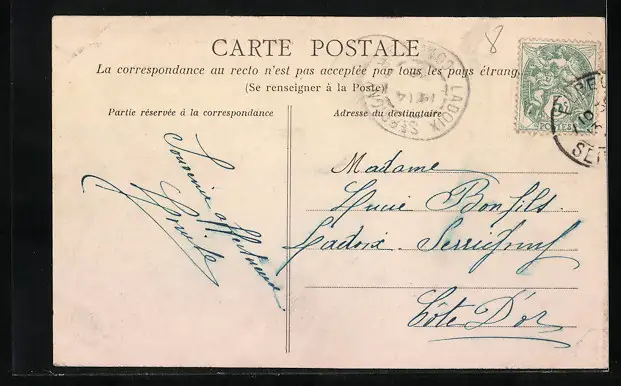 8
CARTE POSTALE
La correspondance au recto n'est pas acceptée par tous les pays étrang
(Se renseigner à la Poste)
Partie réservée à la correspondance
Adresse du destinataire
LADOIX
POSTES
Souvenir affectueux
Madame
Lucie Bonfils
Ladoix. Serrigny
Côte D'or